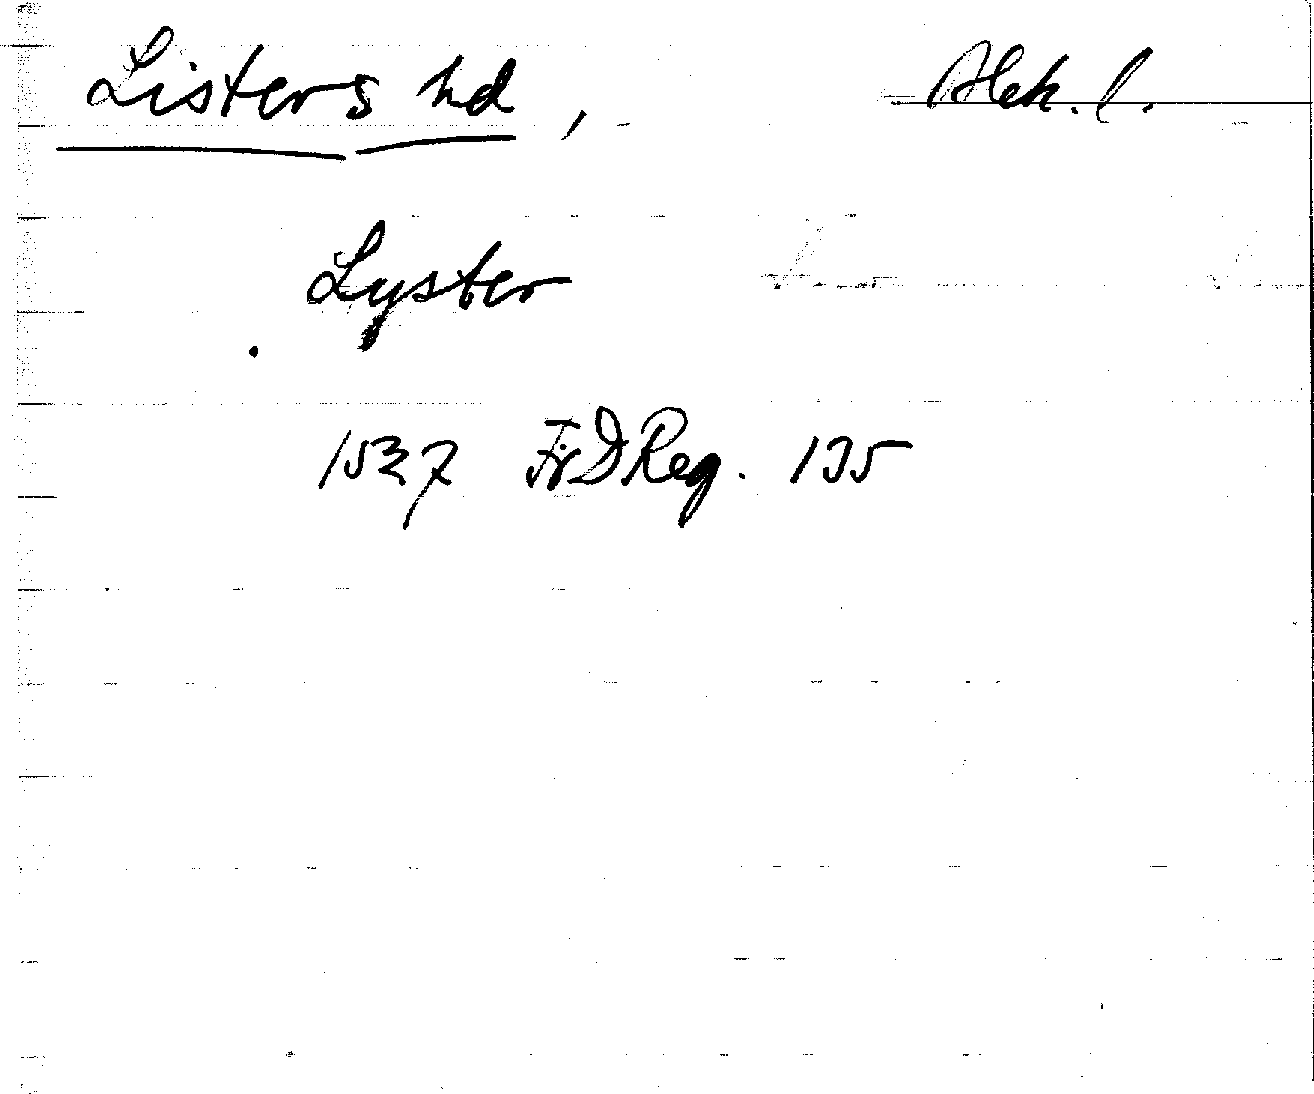 Listers hd, Blek. l.
Lyster
1537 FrDReg. 135